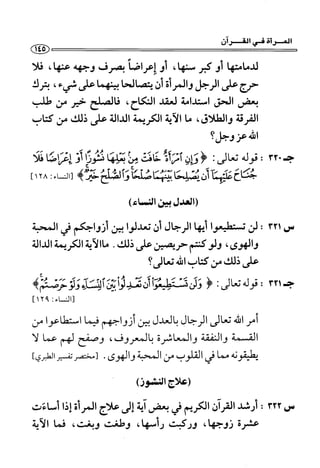 المرأة في القرآن
١٤٥
لدمامتها أو كبر سنها، أو إعراضاً بصرف وجهه عنها، فلا
حرج على الرجل والمرأة أن يتصالحا بينهما على شيء، بترك
بعض الحق استدامة لعقد النكاح، فالصلح خير من طلب
الفرقة والطلاق، ما الآية الكريمة الدالة على ذلك من كتاب
الله عز وجل؟
جـ ٣٢٠ : قوله تعالى: ﴿ وَإِنِ امْرَأَةٌ خَافَتْ مِنْ بَعْلِهَا نُشُوزًا أَوْ إِعْرَاضًا فَلَا
جُنَاحَ عَلَيْهِمَا أَن يُصْلِحَا بَيْنَهُمَا صُلْحًا وَالصُّلْحُ خَيْرٌ ﴾ [النساء: ١٢٨]
(العدل بين النساء)
س ٣٢١ : لن تستطيعوا أيها الرجال أن تعدلوا بين أزواجكم في المحبة
والهوى، ولو كنتم حريصين على ذلك. ما الآية الكريمة الدالة
على ذلك من كتاب الله تعالى؟
جـ ٣٢١ : قوله تعالى: ﴿ وَلَن تَسْتَطِيعُوا أَن تَعْدِلُوا بَيْنَ النِّسَاءِ وَلَوْ حَرَصْتُمْ ﴾
[النساء: ١٢٩]
أمر الله تعالى الرجال بالعدل بين أزواجهم فيما استطاعوا من
القسمة والنفقة والمعاشرة بالمعروف، وصفح لهم عما لا
يطيقونه مما في القلوب من المحبة والهوى. [مختصر تفسير الطبري]
(علاج النشوز)
س ٣٢٢ : أرشد القرآن الكريم في بعض آية إلى علاج المرأة إذا أساءت
عشرة زوجها، وركبت رأسها، وطغت وبغت، فما الآية